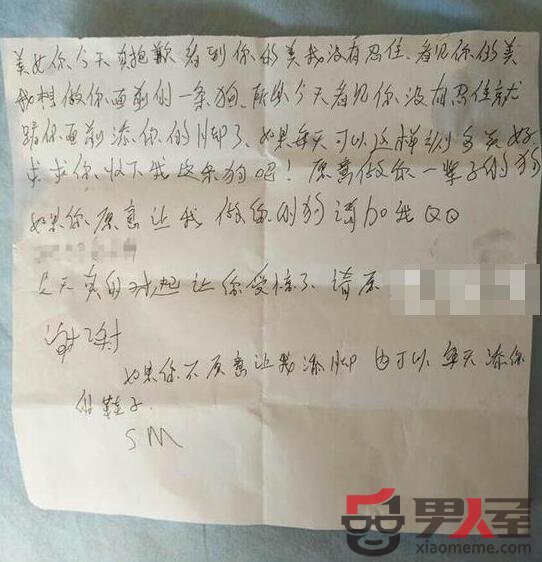 美女你今天真抱歉看到你的美我没有忍住.看见你的美
我想做你面前的一条狗.所以今天看见你没有忍住就
跪你面前添你的脚了、如果每天可以这样该多美好
求求你收下我这条狗吧！愿意做你一辈子的狗
如果你愿意让我做你的狗请加我QQ
今天真的对起让你受惊了请原
谢谢
如果你不愿意让我添脚也可以每天添你
的鞋子.
SM
男人窝
xiaomeme.com